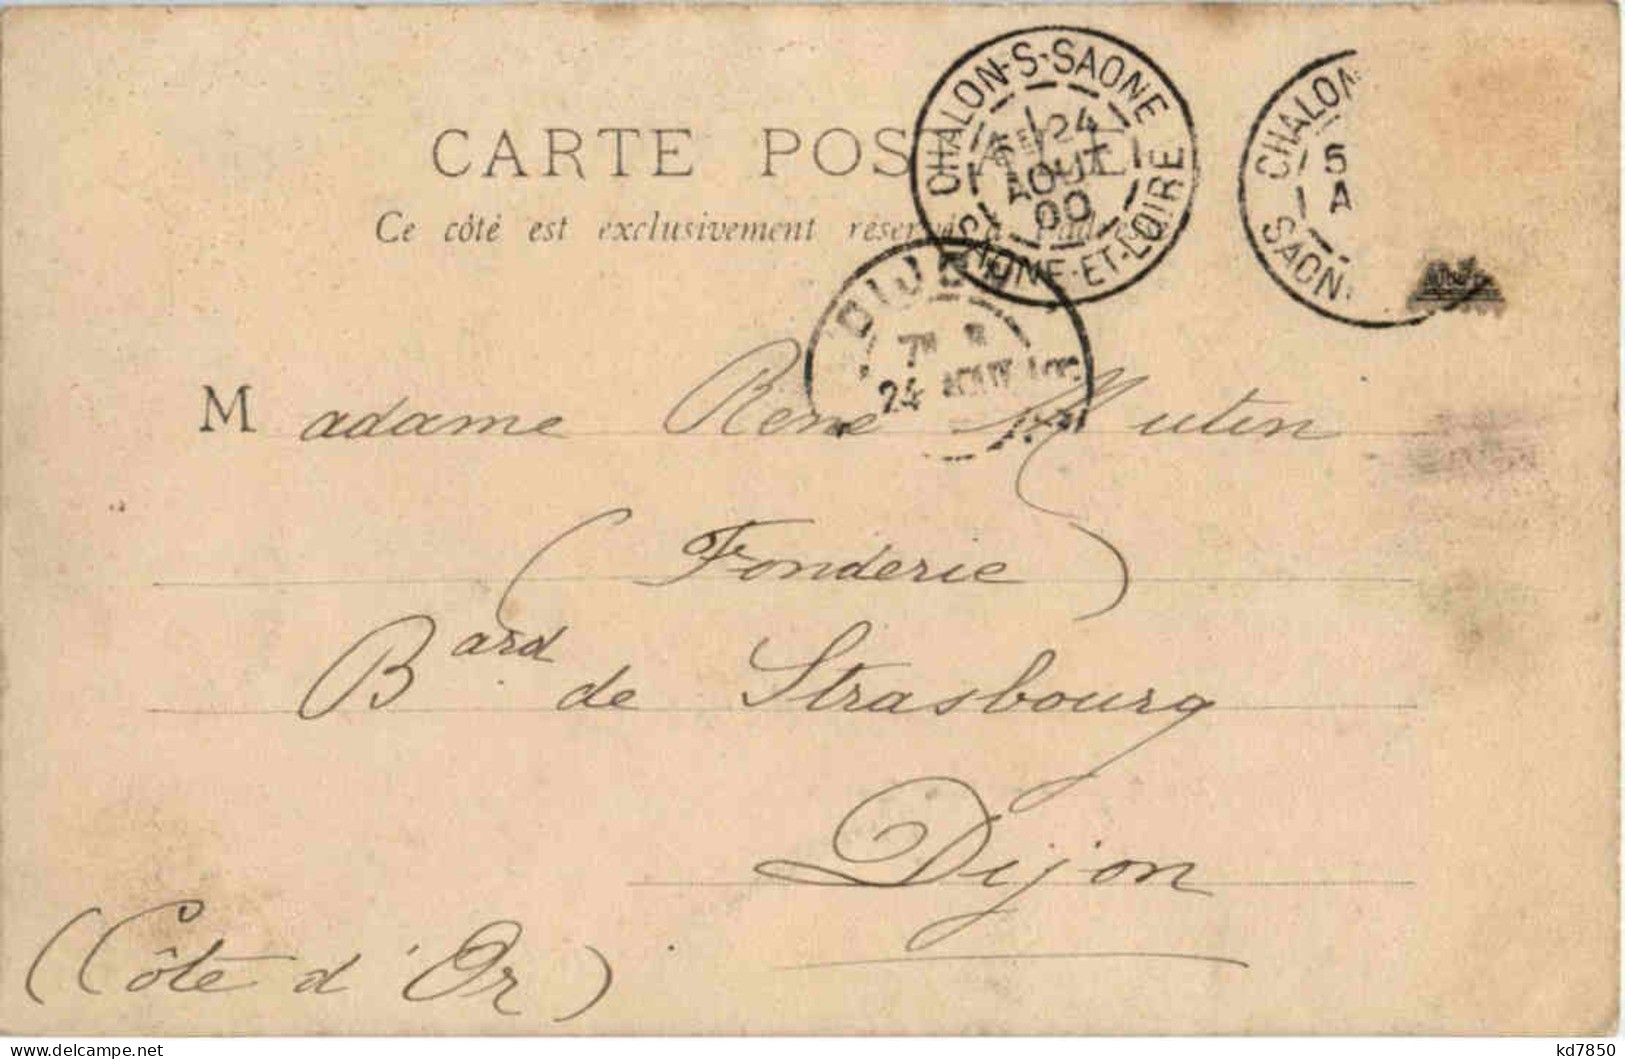 CARTE POSTALE
Ce côté est exclusivement réservé à
CHALON-S-SAONE
24
AOUT
00
SAONE-ET-LOIRE
CHALON
5
A
SAON
DIJON
7
24
Madame René Mutin
(Fonderie)
Bard de Strasbourg
Dijon
(Côte d'Or)
www.delcampe.net
kd7850